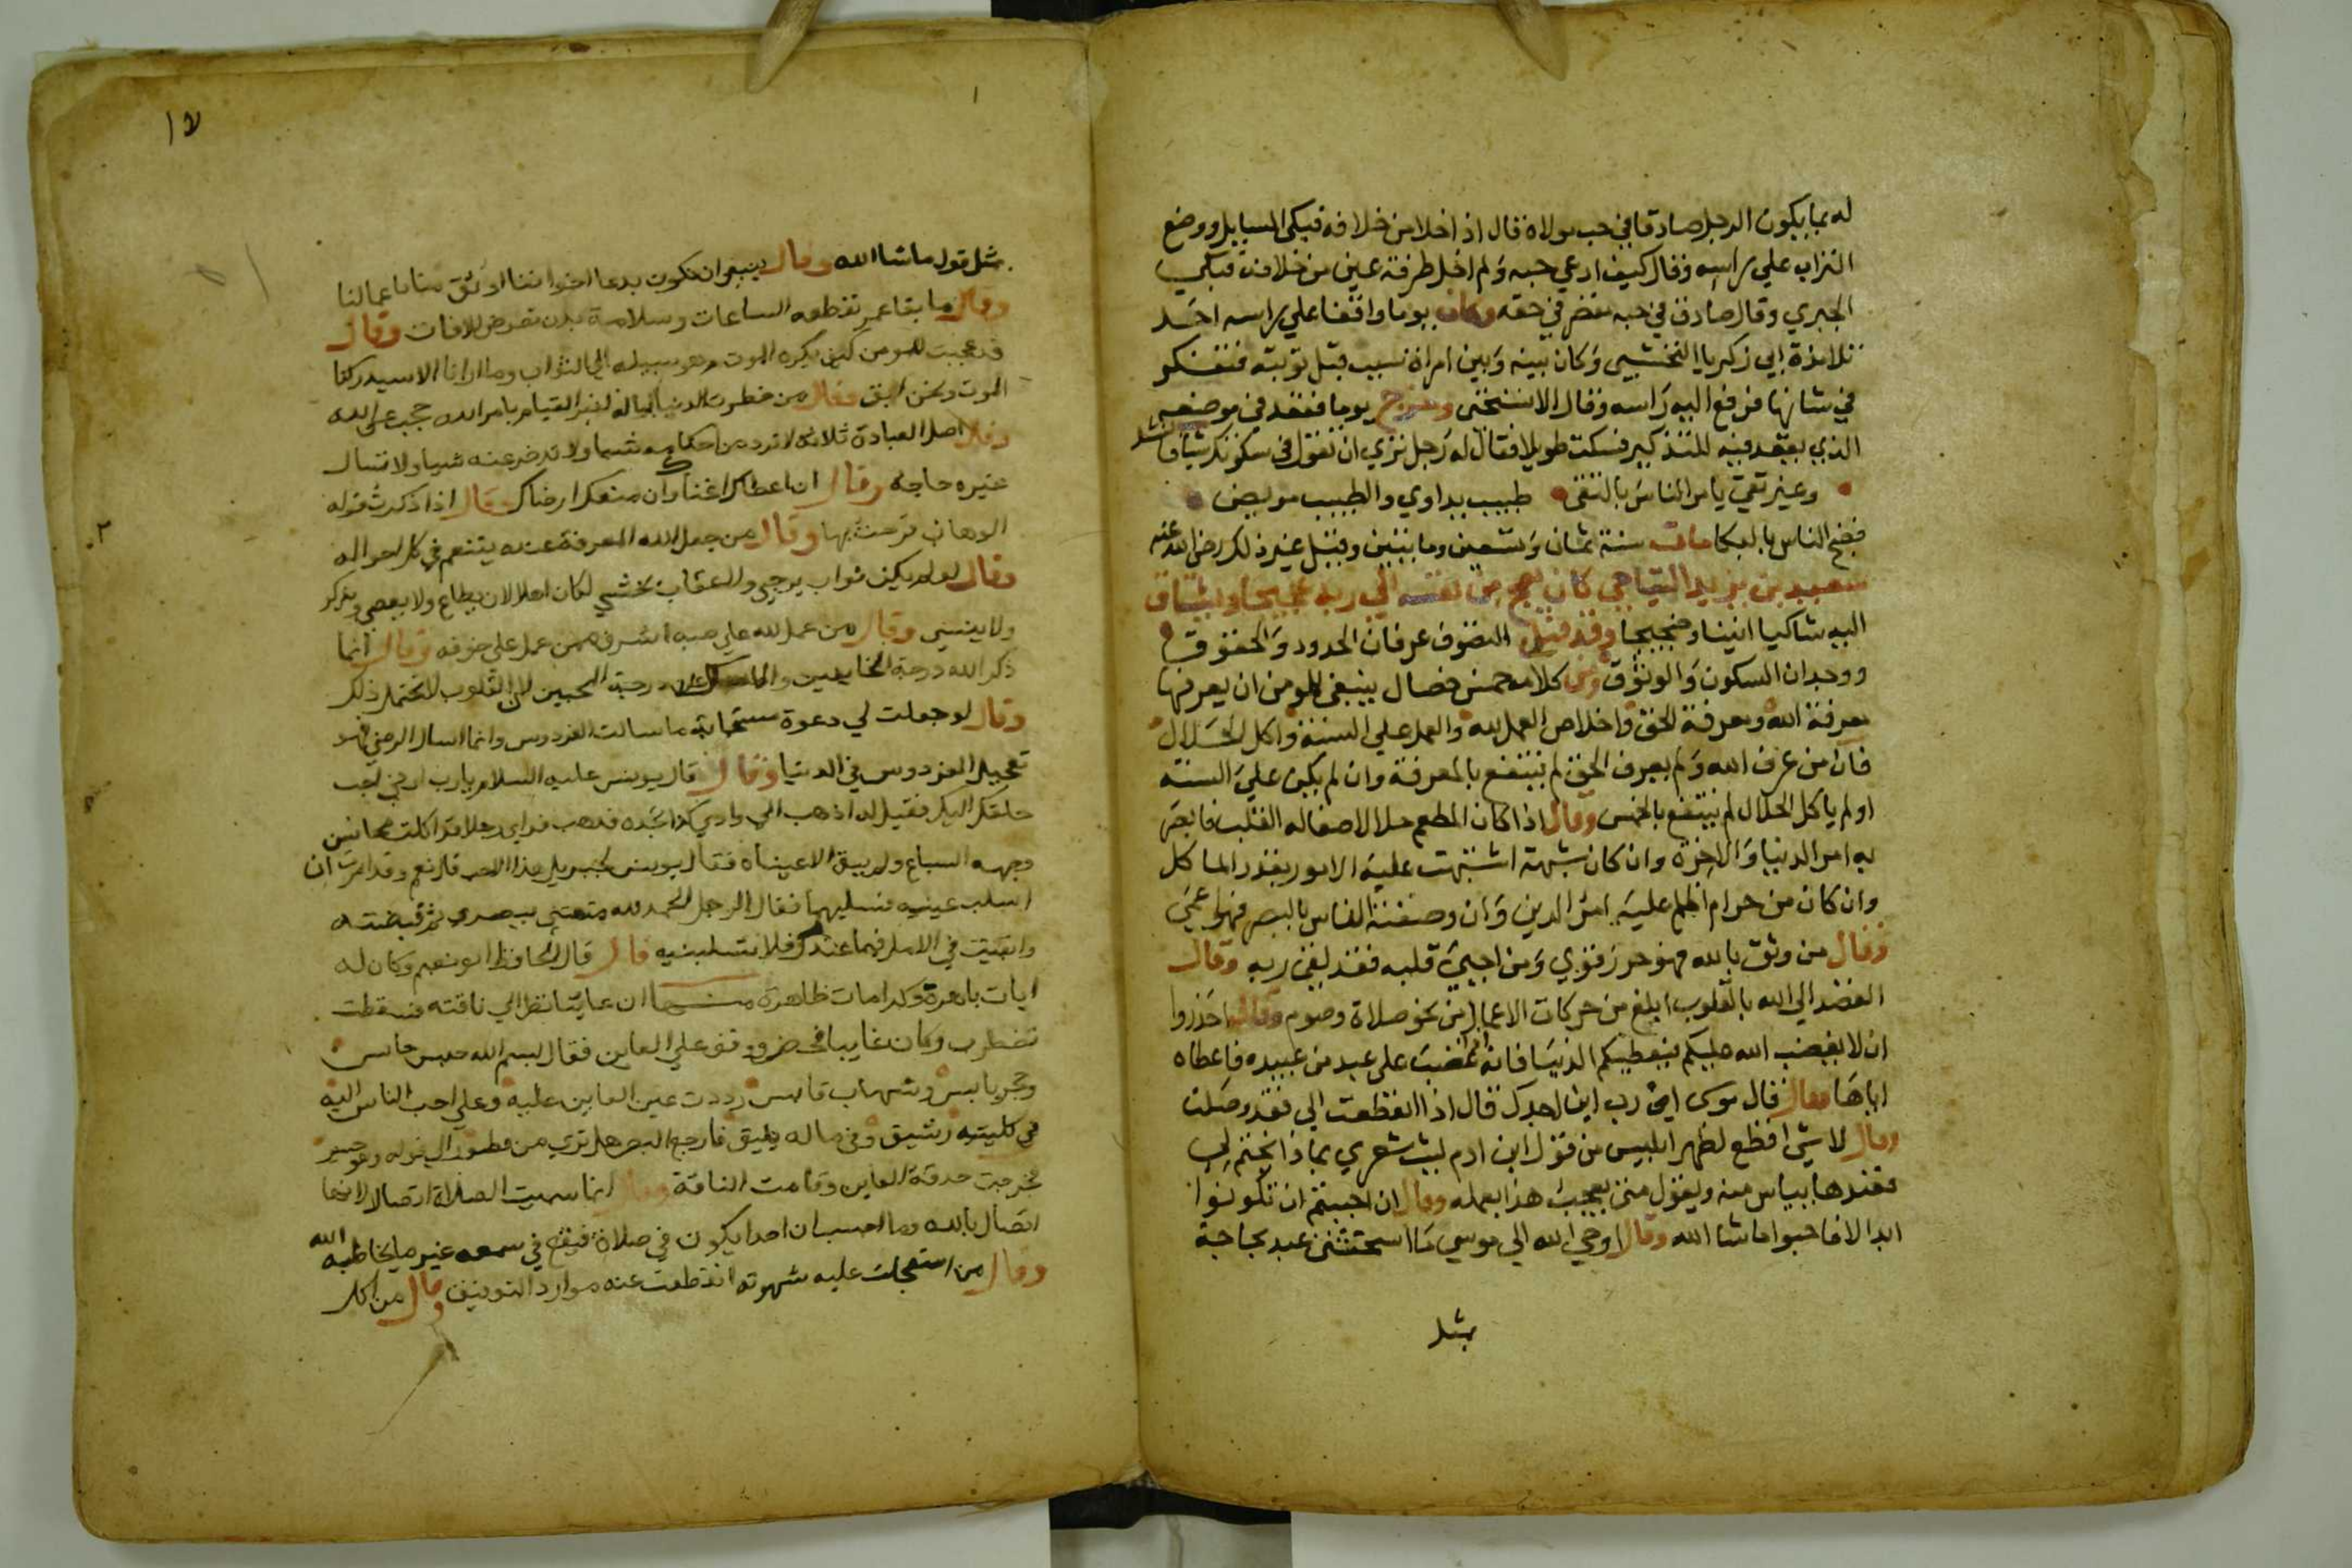 له بما يكون الرجل صادقا في حب مولاه فقال اذا خلا من خلافه فبكى السايل ووضع
التراب علي راسه وقال كيف ادعي حبه ولم اخل طرفة عين من خلافه فبكي
الجبري وقال صادق في حبه مقصر في حقه وكان يوما واقفا علي راسه احد
تلامذة ابي زكريا النخشبي وكان بينه وبين امراة نسيب قبل توبته فتفكر
في شانها فرفع اليه راسه وقال الا تستحي وخرج يوما فقعد في موضعه
الذي يقعد فيه للتذكير فسكت طويلا فقال له رجل نري ان تقول في سكوتك شيا فانشد
وغير تقي يامر الناس بالتقى • طبيب يداوي والطبيب مريض •
فضج الناس بالبكا مات سنة ثمان وتسعين ومايتين وقيل غير ذلك رضي الله عنه
سعيد بن يزيد النباجي كان يعج من نفسه الي ربه عجيجا ويشتاق
اليه شاكيا انينا وضجيجا وقد قيل التصوف عرفان الحدود والحقوق
ووجدان السكون والوثوق ومن كلامه خمس خصال ينبغي للمومن ان يعرفها
معرفة الله ومعرفة الحق واخلاص العمل لله والعمل علي السنة واكل الحلال
فان من عرف الله ولم يعرف الحق لم ينتفع بالمعرفة وان لم يكن علي السنة
او لم ياكل الحلال لم ينتفع بالخمس وقال اذا كان المطعم حلالا صفا له القلب فابصر
به امر الدنيا والاخرة وان كان شبهة اشتبهت عليه الامور بقدر الماكل
وان كان من حرام اظلم عليه امر الدين وان وصفته الناس بالبصر فهو اعمي
وقال من وثق بالله فهو حرز قوي ومن احيى قلبه فقد لقي ربه وقال
القصد الي الله بالقلوب ابلغ من حركات الاعمال من نحو صلاة وصوم وقال احذروا
ان لا يغضب الله عليكم فيعطيكم الدنيا فانه غضب على عبد من عبيده فاعطاه
اياها وقال قال موسى اي رب اين اجدك قال اذا انقطعت الي فقد وصلت
وقال لا شي اقطع لظهر ابليس من قول ابن ادم ليت شعري بماذا يختم لي
فعندها يياس منه ويقول متى يعجب هذا بعمله وقال ان احببتم ان تكونوا
ابدالا فاحبوا ما شا الله وقال اوحي الله الي موسي ما استحثني عبد بحاجة
مثل
١٧
مثل قوله ما شا الله وقال ينبغي ان نكون بدعا اخواننا اوثق منا باعمالنا
وقال ما بقا عمر تقطعه الساعات وسلامة بدن تعرض للافات وقال
قد عجبت للمومن كيف يكره الموت وهو سبيله الي الثواب وما ارانا الا سيدركنا
الموت ونحن ابق وقال من خطرت الدنيا بباله لغير القيام بامر الله حجب عن الله
وقال اصل العبادة ثلاثة لا ترد من احكامه شيا ولا تدخر عنه شيا ولا تسال
غيره حاجة وقال ان اعطاك اغناك وان منعك ارضاك وقال اذا ذكرت قوله
الوهاب فرحت بها وقال من جعل الله المعرفة عنده يتنعم في كل احواله
وقال لو لم يكن ثواب يرجي ولا عقاب يخشي لكان اهلا لان يطاع ولا يعصي ويذكر
ولا ينسي وقال من عمل لله علي حبه اشرف ممن عمل علي خوفه وقال انما
ذكر الله درجة الخايفين وامسك عن درجة المحبين لان القلوب لا تحتمل ذلك
وقال لو جعلت لي دعوة مستجابة ما سالت الفردوس وانما اسال الرضي فهو
تعجيل الفردوس في الدنيا وقال قال يونس عليه السلام يارب ارني احب
خلقك اليك فقيل له اذهب الي وادي كذا تجده فذهب فراي رجلا قد اكلت محاسن
وجهه السباع ولم يبق الا عيناه فقال يونس لجبريل هذا الحب قال نعم وقد امرت ان
اسلب عينيه فسلبهما فقال الرجل الحمد لله متعتني ببصري ثم قبضته
وابقيت في الامل فيما عندك فلا تسلبنيه قال قال الحافظ ابو نعيم وكان له
ايات باهرة وكرامات ظاهرة منها ان عاينا نظر الي ناقته فسقطت
تضطرب وكان غايبا فحضر ووقف علي العاين فقال بسم الله حبس حابس
وحجر يابس وشهاب قابس رددت عين العاين عليه وعلي احب الناس اليه
في كليتيه رشيق وفي ماله يليق فارجع البصر هل تري من فطور الي قوله وهو حسير
فخرجت حدقة العاين وقامت الناقة وقال انما سميت الصلاة اتصالا لانها
اتصال بالله وما احسب ان احدا يكون في صلاة فيقع في سمعه غير ما يخاطبه الله
وقال من استعجلت عليه شهوته انقطعت عنه موارد التوفيق وقال من اكل